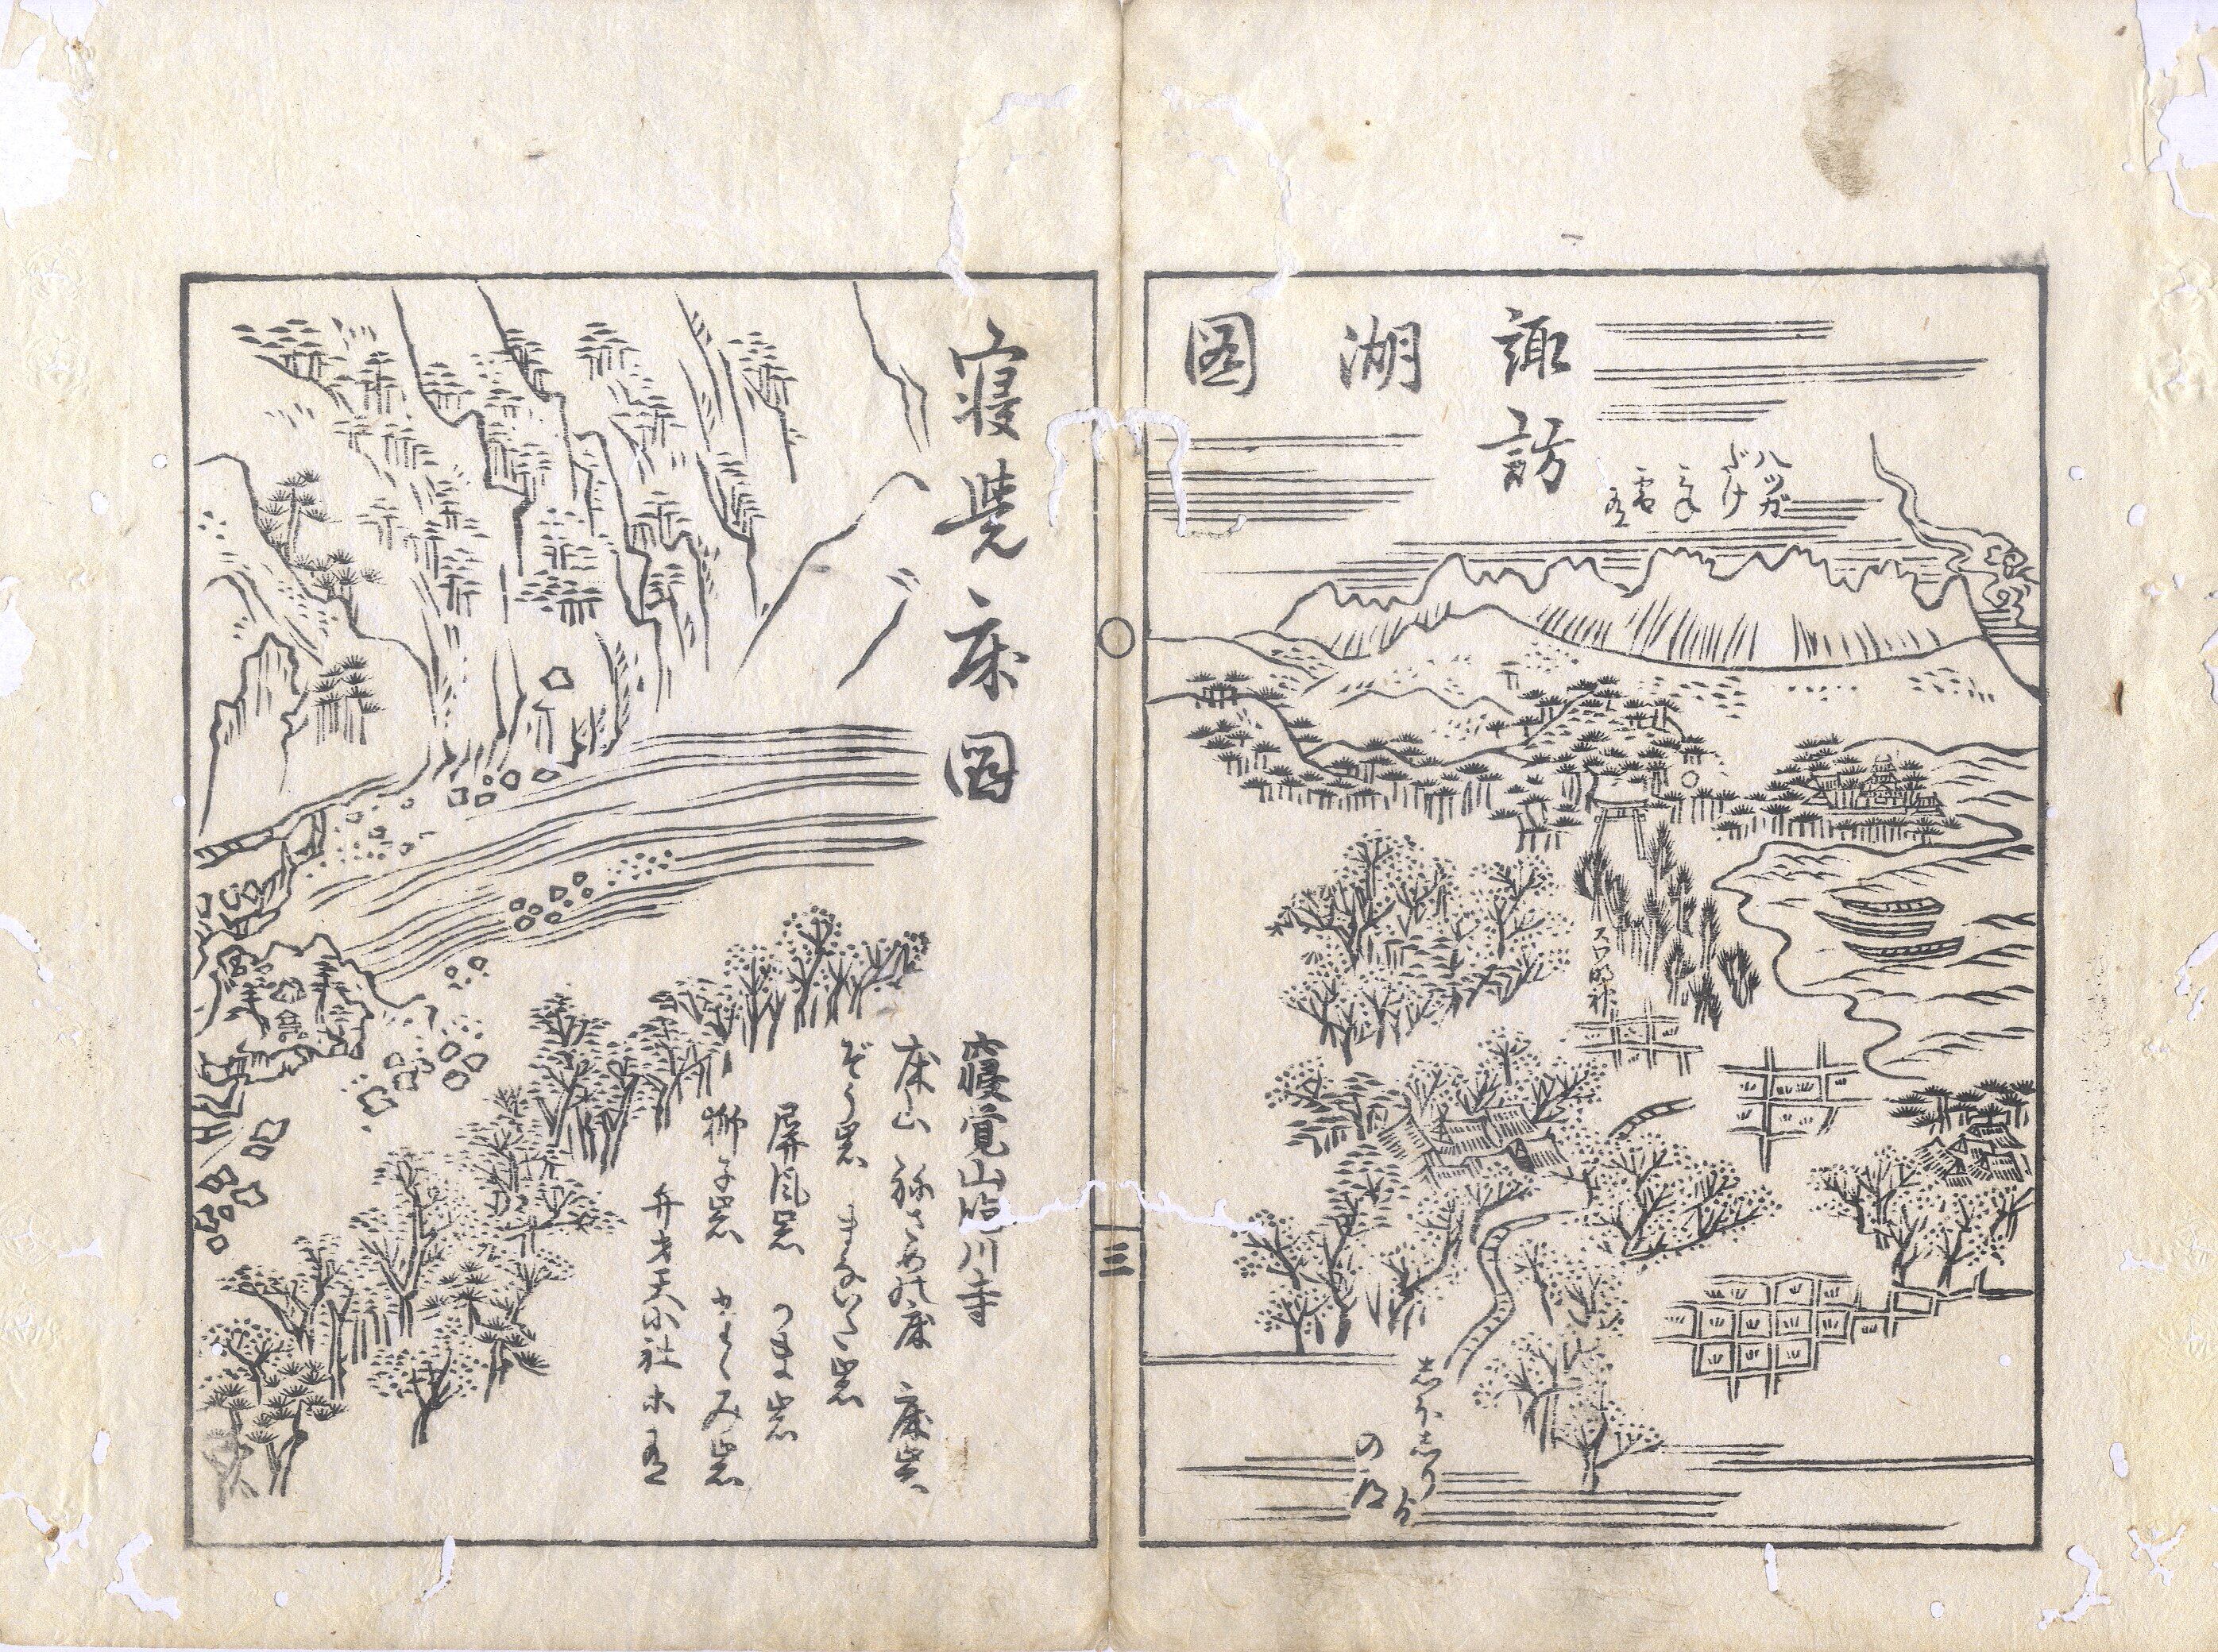 諏訪
湖
圖
八ツガ
だけ
三ノ
雪
スワ明神
志ほ志り
の
三
寝覚床圖
寝覚山臨川寺
床山 祢さめ乃床 床岩
ぞう岩 まないた岩
屏風岩 つま岩
獅子岩 かゝみ岩
弁才天ノ社